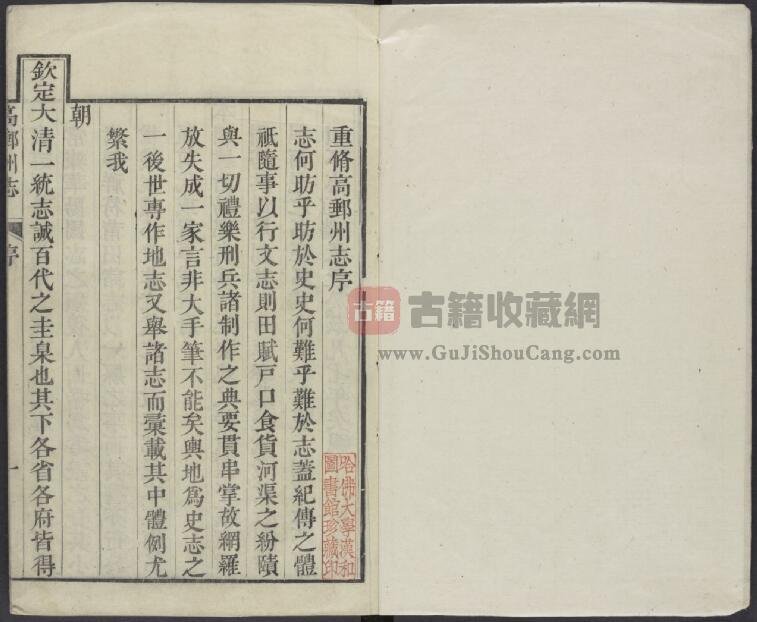 重脩高郵州志序
志何昉乎昉於史史何難乎難於志蓋紀傳之體
祇隨事以行文志則田賦戸口食貨河渠之紛賾
與一切禮樂刑兵諸制作之典要貫串掌故網羅
放失成一家言非大手筆不能矣輿地爲史志之
一後世專作地志又舉諸志而彙載其中體例尤
繁我
朝
欽定大清一統志誠百代之圭臬也其下各省各府皆得
高郵州志
序
一
哈佛大學漢和
圖書館珍藏印
古籍
古籍收藏網
www.GuJiShouCang.com